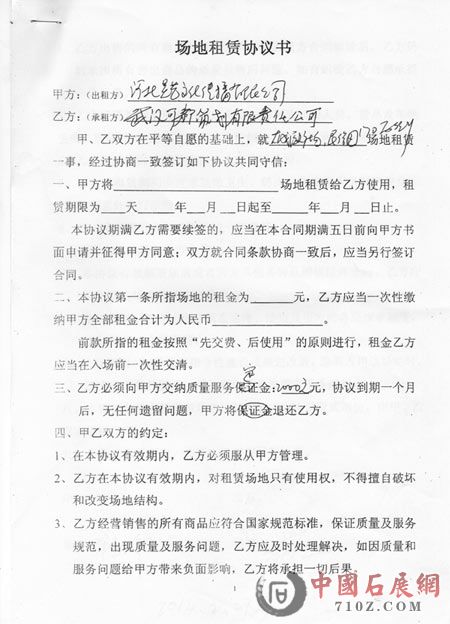 场地租赁协议书
甲方：（出租方）
乙方：（承租方）武汉司 策划有限责任公司
甲、乙双方在平等自愿的基础上，就 场地租赁
一事，经过协商一致签订如下协议共同守信：
一、甲方将 场地租赁给乙方使用，租
赁期限为 天 年 月 日起至 年 月 日止。
本协议期满乙方需要续签的，应当在本合同期满五日前向甲方书
面申请并征得甲方同意；双方就合同条款协商一致后，应当另行签订
合同。
二、本协议第一条所指场地的租金为 元，乙方应当一次性缴
纳甲方全部租金合计为人民币 。
前款所指的租金按照“先交费、后使用”的原则进行，租金乙方
应当在入场前一次性交清。
定
三、乙方必须向甲方交纳质量服务保证金:20000元，协议到期一个月
后，无任何遗留问题，甲方将保证金退还乙方。
四、甲乙双方的约定：
1、在本协议有效期内，乙方必须服从甲方管理。
2、乙方在本协议有效期内，对租赁场地只有使用权，不得擅自破坏
和改变场地结构。
3、乙方经营销售的所有商品应符合国家规范标准，保证质量及服务
规范，出现质量及服务问题，乙方应及时处理解决，如因质量和
服务问题给甲方带来负面影响，乙方将承担一切后果。
1
中國石展網
710Z.COM